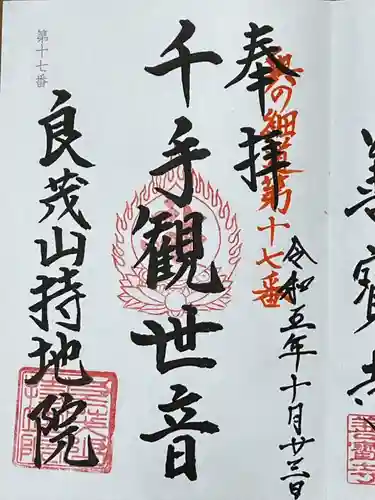 奉拝
奥の細道第十七番
令和五年十月廿三日
千手観世音
良茂山持地院
第十七番